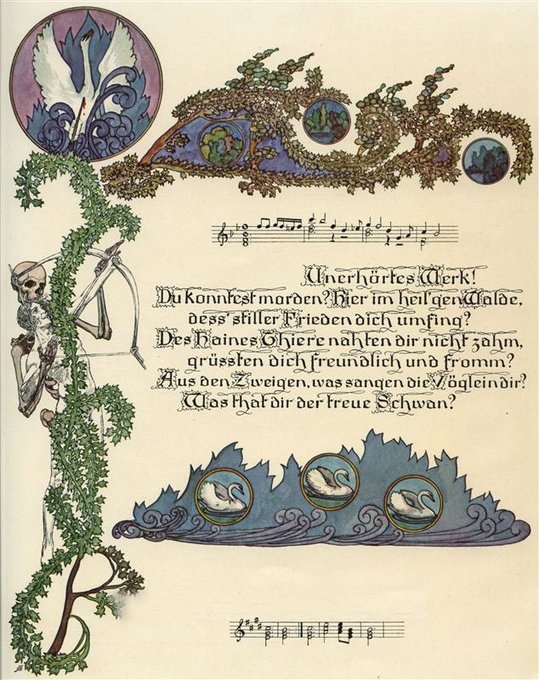 Unerhörtes Werk!
Du konntest morden? Hier im heil'gen Walde,
dess' stiller Frieden dich umfing?
Des Haines Thiere nahten dir nicht zahm,
grüssten dich freundlich und fromm?
Aus den Zweigen, was sangen die Vöglein dir?
Was that dir der treue Schwan?